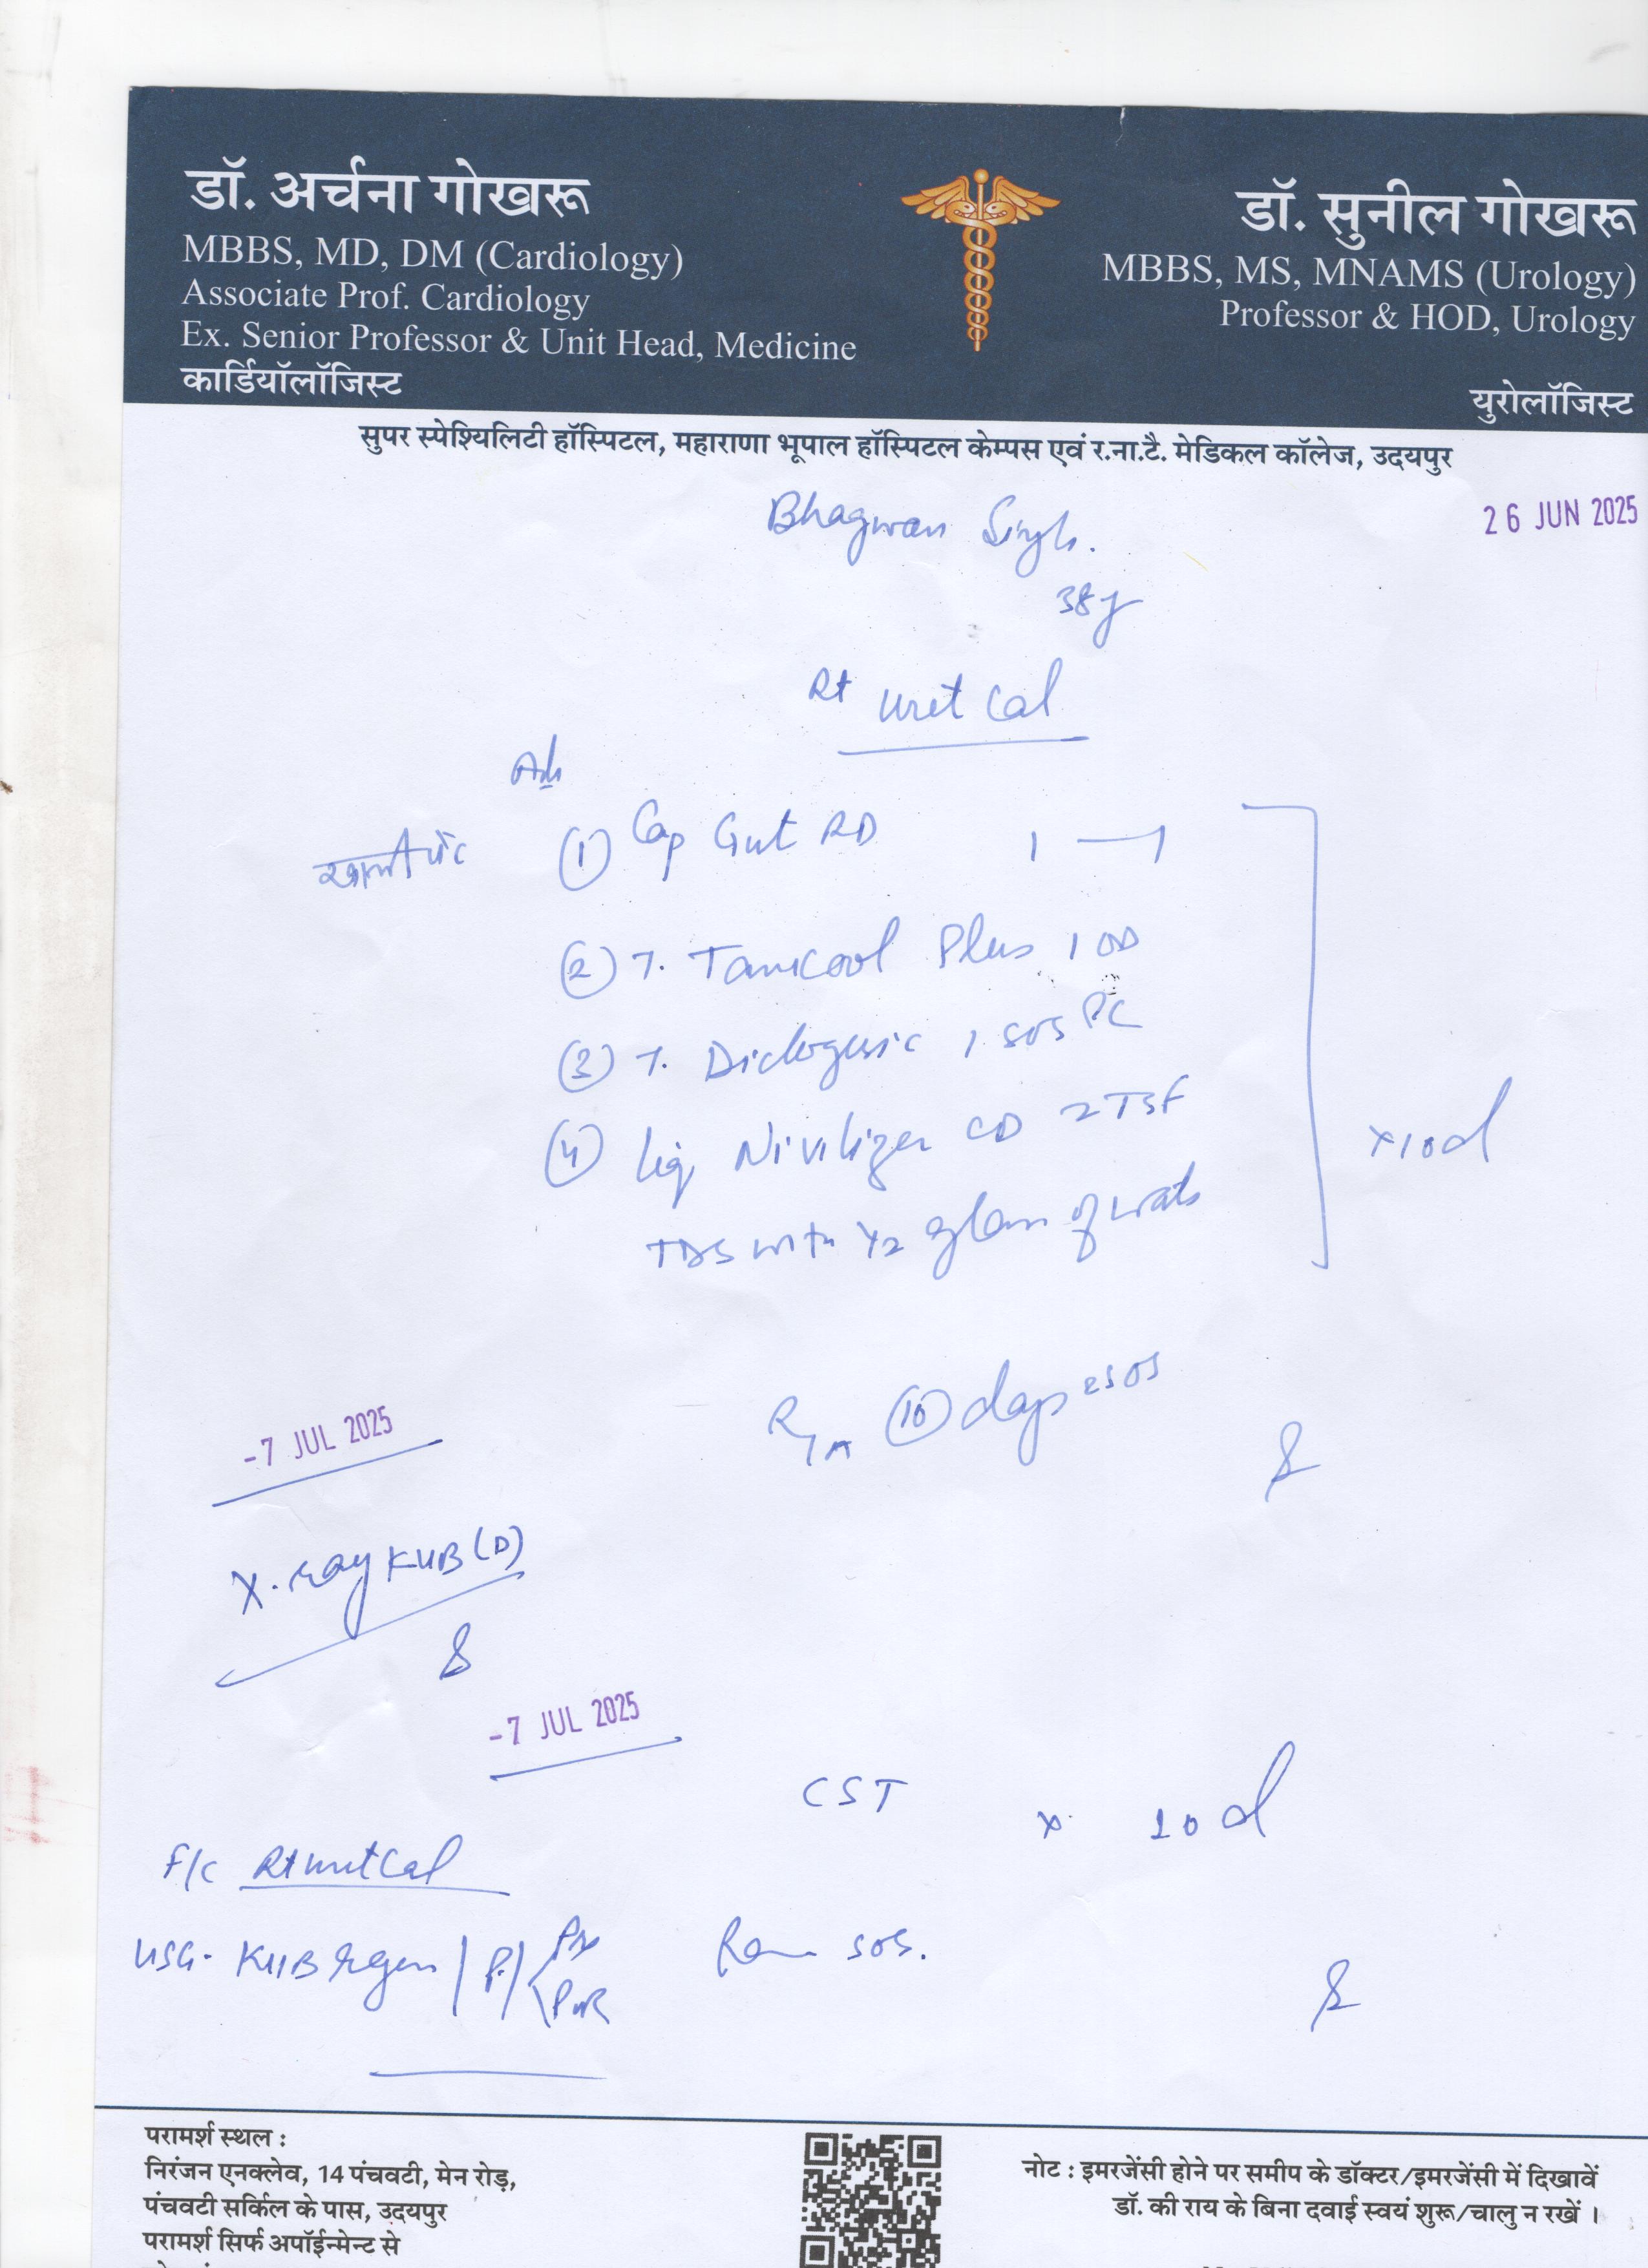 डॉ. अर्चना गोखरू
MBBS, MD, DM (Cardiology)
Associate Prof. Cardiology
Ex. Senior Professor & Unit Head, Medicine
कार्डियॉलॉजिस्ट
डॉ. सुनील गोखरू
MBBS, MS, MNAMS (Urology)
Professor & HOD, Urology
युरोलॉजिस्ट
सुपर स्पेश्यिलिटी हॉस्पिटल, महाराणा भूपाल हॉस्पिटल केम्पस एवं र.ना.टै. मेडिकल कॉलेज, उदयपुर
26 JUN 2025
Bhagwan Singh.
38y
Rt Uret Cal
Adv
खाली पेट (1) Cap Gut RD 1 — 1
(2) T. Tamcool Plus 1 OD
(3) T. Diclogesic 1 SOS PC
(4) Liq Nivilizer CD 2 TSF
TDS with 1/2 glass of water
x 10 d
10 days SOS
-7 JUL 2025
X-ray KUB (D)
-7 JUL 2025
CST x 10 d
F/C Rt uret Cal
USG- KUB region / P/
SOS.
परामर्श स्थल :
निरंजन एनक्लेव, 14 पंचवटी, मेन रोड़,
पंचवटी सर्किल के पास, उदयपुर
परामर्श सिर्फ अपॉईन्मेन्ट से
नोट : इमरजेंसी होने पर समीप के डॉक्टर/इमरजेंसी में दिखावें
डॉ. की राय के बिना दवाई स्वयं शुरू/चालु न रखें ।